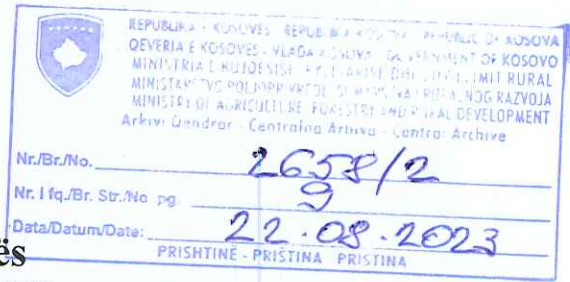 REPUBLIKA E KOSOVËS - REPUBLIKA KOSOVA - REPUBLIC OF KOSOVA
QEVERIA E KOSOVËS - VLADA KOSOVA - GOVERNMENT OF KOSOVO
MINISTRIA E BUJQËSISË PYLLTARISË DHE ZHVILLIMIT RURAL
MINISTARSTVO POLJOPRIVREDE ŠUMARSTVA I RURALNOG RAZVOJA
MINISTRY OF AGRICULTURE FORESTRY AND RURAL DEVELOPMENT
Arkivi Qendror - Centralna Arhiva - Central Archive
Nr./Br./No. 2658/2
Nr. i fq./Br. Str./No. pg. 9
Data/Datum/Date: 22.08.2023
PRISHTINË - PRISTINA PRISTINA
ës